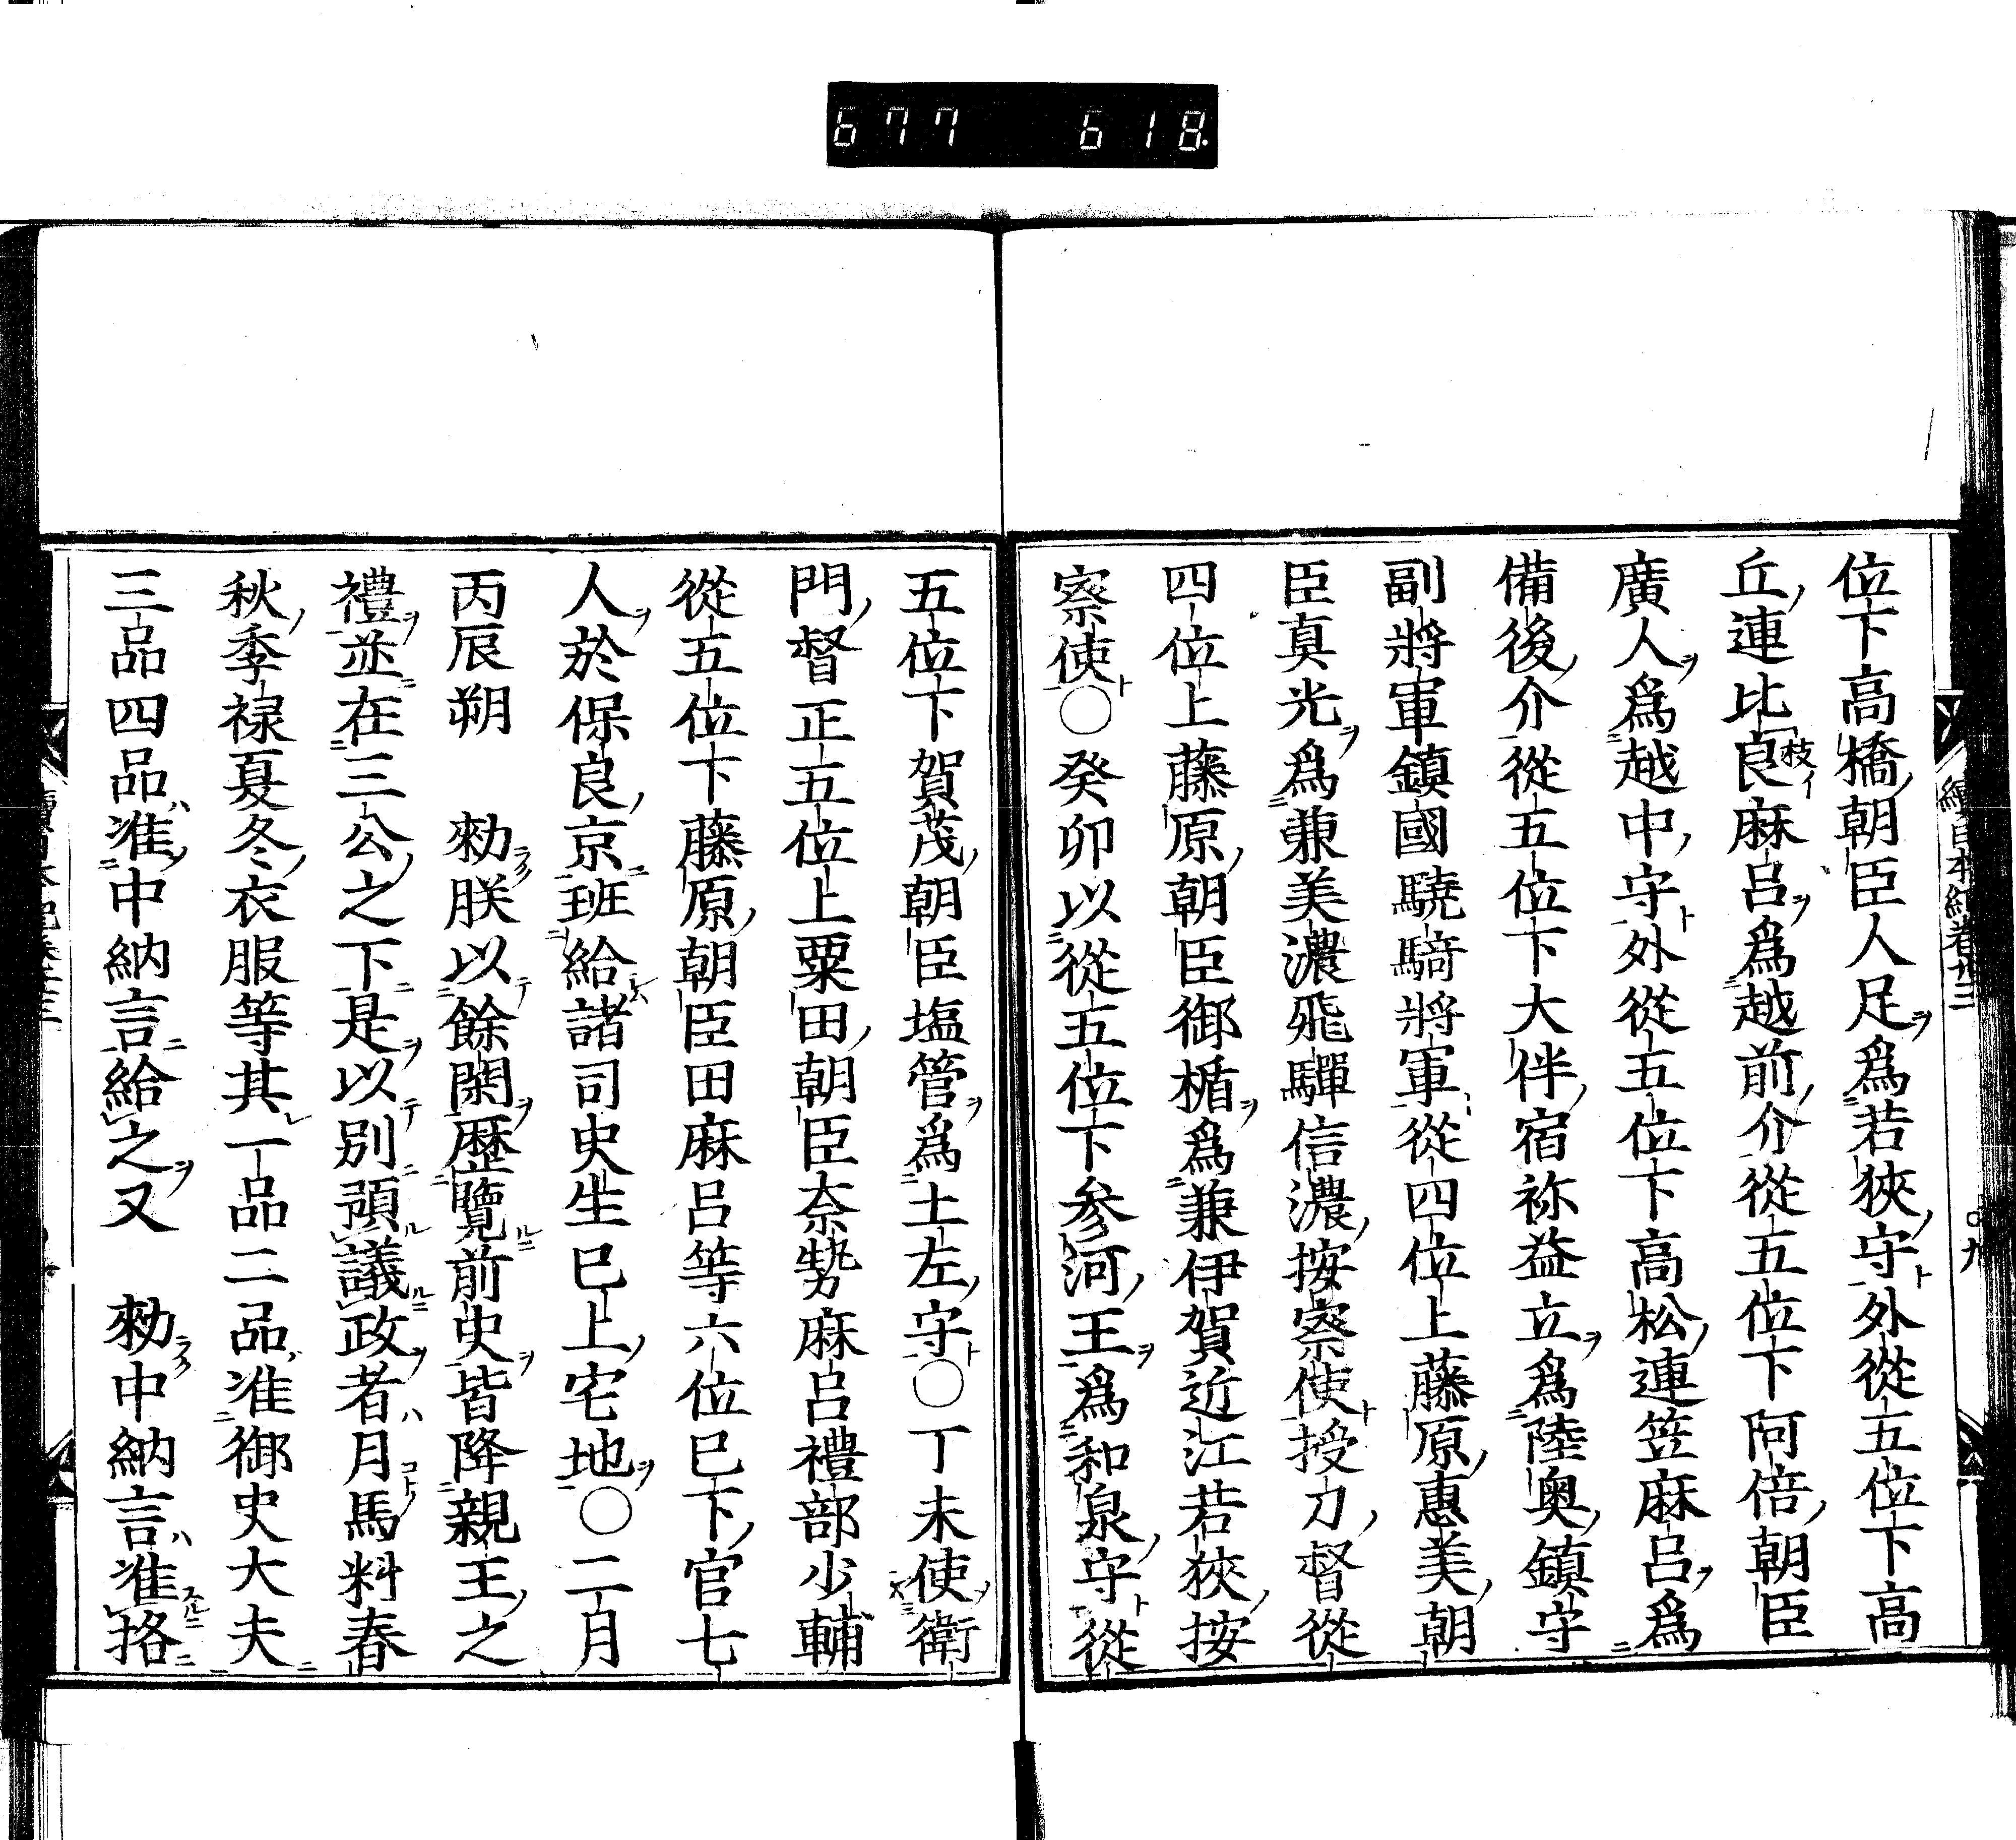 677 618.
位下高橋朝臣人足爲若狹守外從五位下高
丘連比良麻呂爲越前介從五位下阿倍朝臣
枝イ
廣人爲越中守外從五位下高松連笠麻呂爲
備後介從五位下大伴宿祢益立爲陸奥鎮守
副將軍鎮國驍騎將軍從四位上藤原惠美朝
臣真光爲兼美濃飛驒信濃按察使授刀督從
四位上藤原朝臣御楯爲兼伊賀近江若狹按
察使〇癸卯以從五位下参河王爲和泉守從
五位下賀茂朝臣塩管爲土左守〇丁未使衛
門督正五位上粟田朝臣奈勢麻呂禮部少輔
從五位下藤原朝臣田麻呂等六位巳下官七
人於保良京班給諸司史生巳上宅地〇二月
丙辰朔 勑朕以餘閑歴覽前史皆降親王之
禮並在三公之下是以別預議政者月馬料春
秋季禄夏冬衣服等其一品二品准御史大夫
三品四品准中納言給之又 勑中納言准格